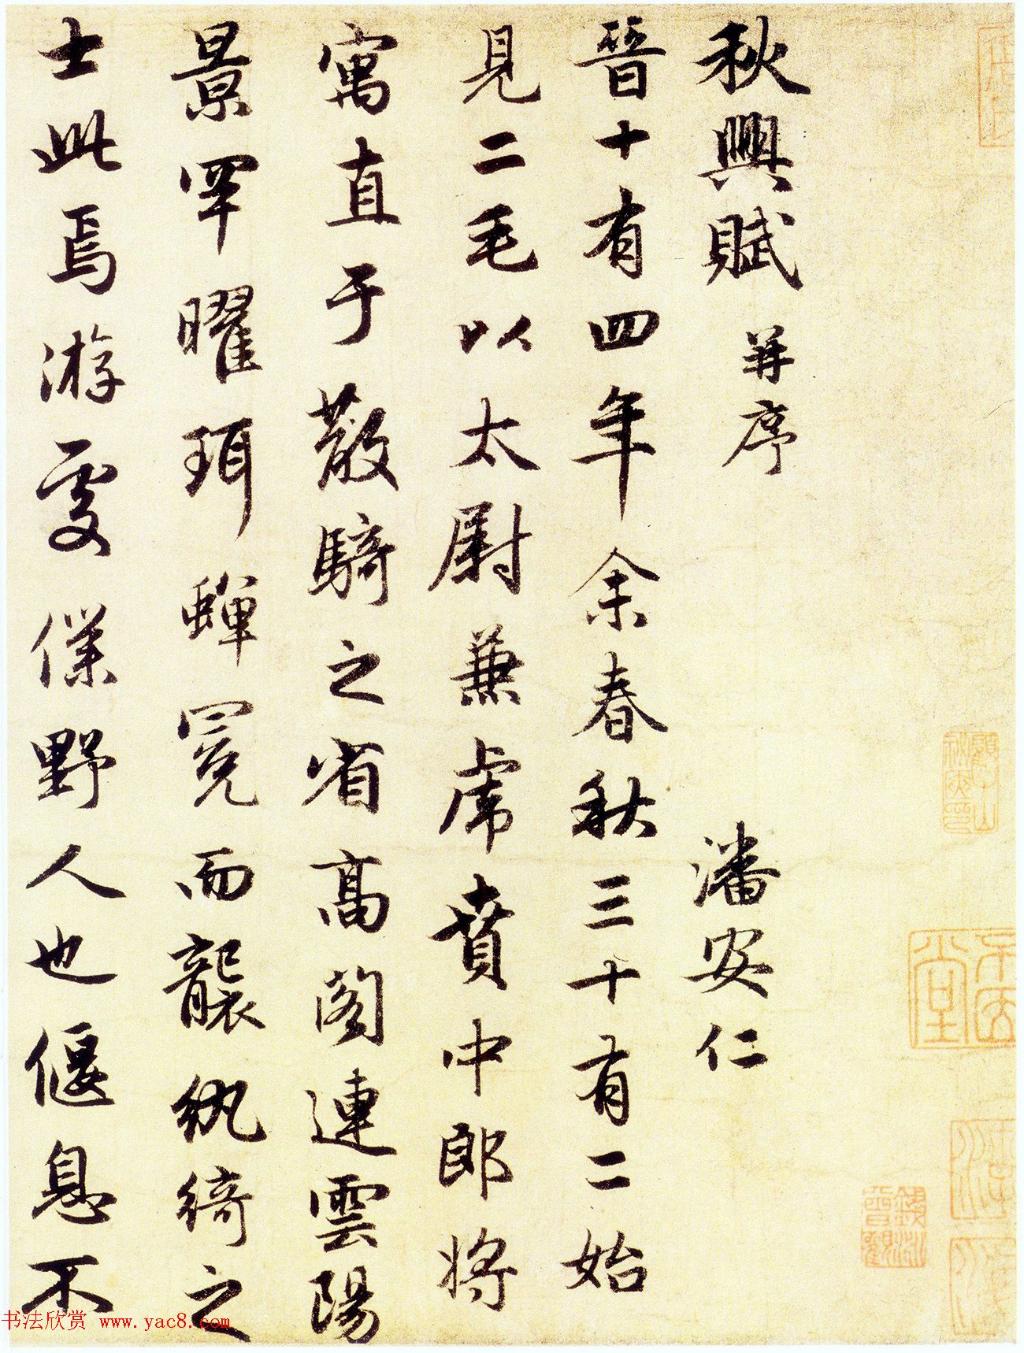 秋興賦 并序 潘安仁
晉十有四年余春秋三十有二始
見二毛以太尉兼虎賁中郎將
寓直于散騎之省高閣連雲陽
景罕曜珥蟬冕而襲紈綺之
士此焉游處僕野人也偃息不
书法欣赏 www.yac8.com